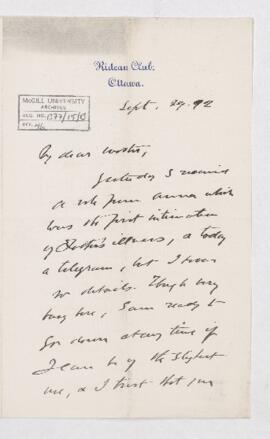 Rideau Club.
Ottawa.
McGILL UNIVERSITY
ARCHIVES
ACC. NO. 1277/15/
REF.
Sept. 29. 92
My dear
Yesterday I received
a note from Anna which
was the first intimation
of illness, & today
a telegram, but I have
no details. Though very
busy here, I am ready to
go down at any time if
I can be of the slightest
use, & I trust that you